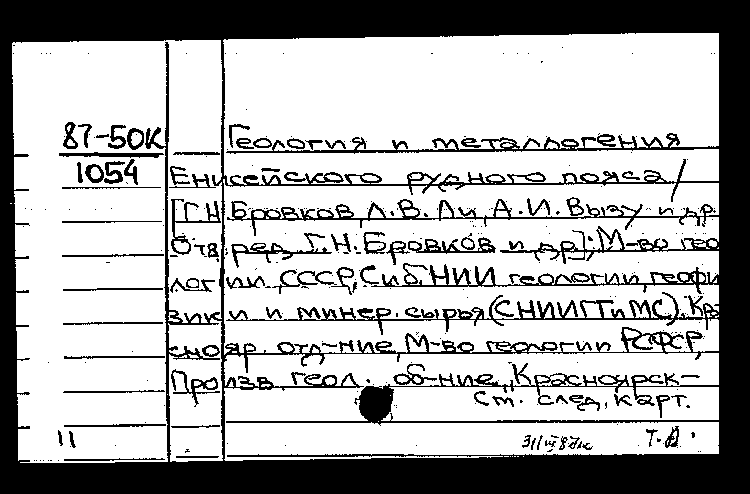 87-50К
1054
Геология и металлогения
Енисейского рудного пояса /
[Г.Н. Бровков, Л.В. Ли, А.И. Вызу и др.
Отв. ред. Г.Н. Бровков и др.]; М-во гео
логии СССР, Сиб. НИИ геологии, геофи
зики и минер. сырья (СНИИГГиМС). Кра
снояр. отд-ние, М-во геологии РСФСР,
Произв. геол. об-ние „Красноярск-
См. след. карт.
11
Т.А.